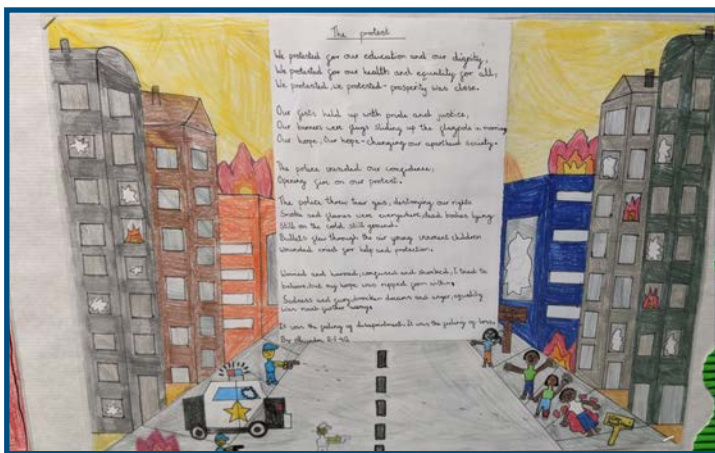 The protest
We protested for our education and our dignity,
We protested for our health and equality for all,
We protested, we protested - prosperity was close.
Our fists held up with pride and justice,
Our banners were flags sliding up the flagpole in morning
Our hope, Our hope - changing our apartheid society.
The police wounded our confidence,
Opening fire on our protest.
The police threw tear gas, destroying our rights
Smoke and flames were everywhere, dead bodies lying
Still on the cold still ground.
Bullets flew through the air young innocent children
Wounded cried for help and protection.
Worried and burned, confused and shocked, I tried to
believe, but my hope was ripped from within,
Sadness and fury, broken dreams and anger, equality
was much further away.
It was the feeling of disappointment. It was the feeling of
By